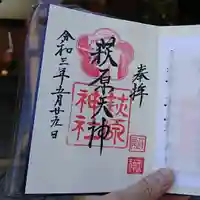 奉拝
萩原天神
萩原
神社
令和三年五月廿九日